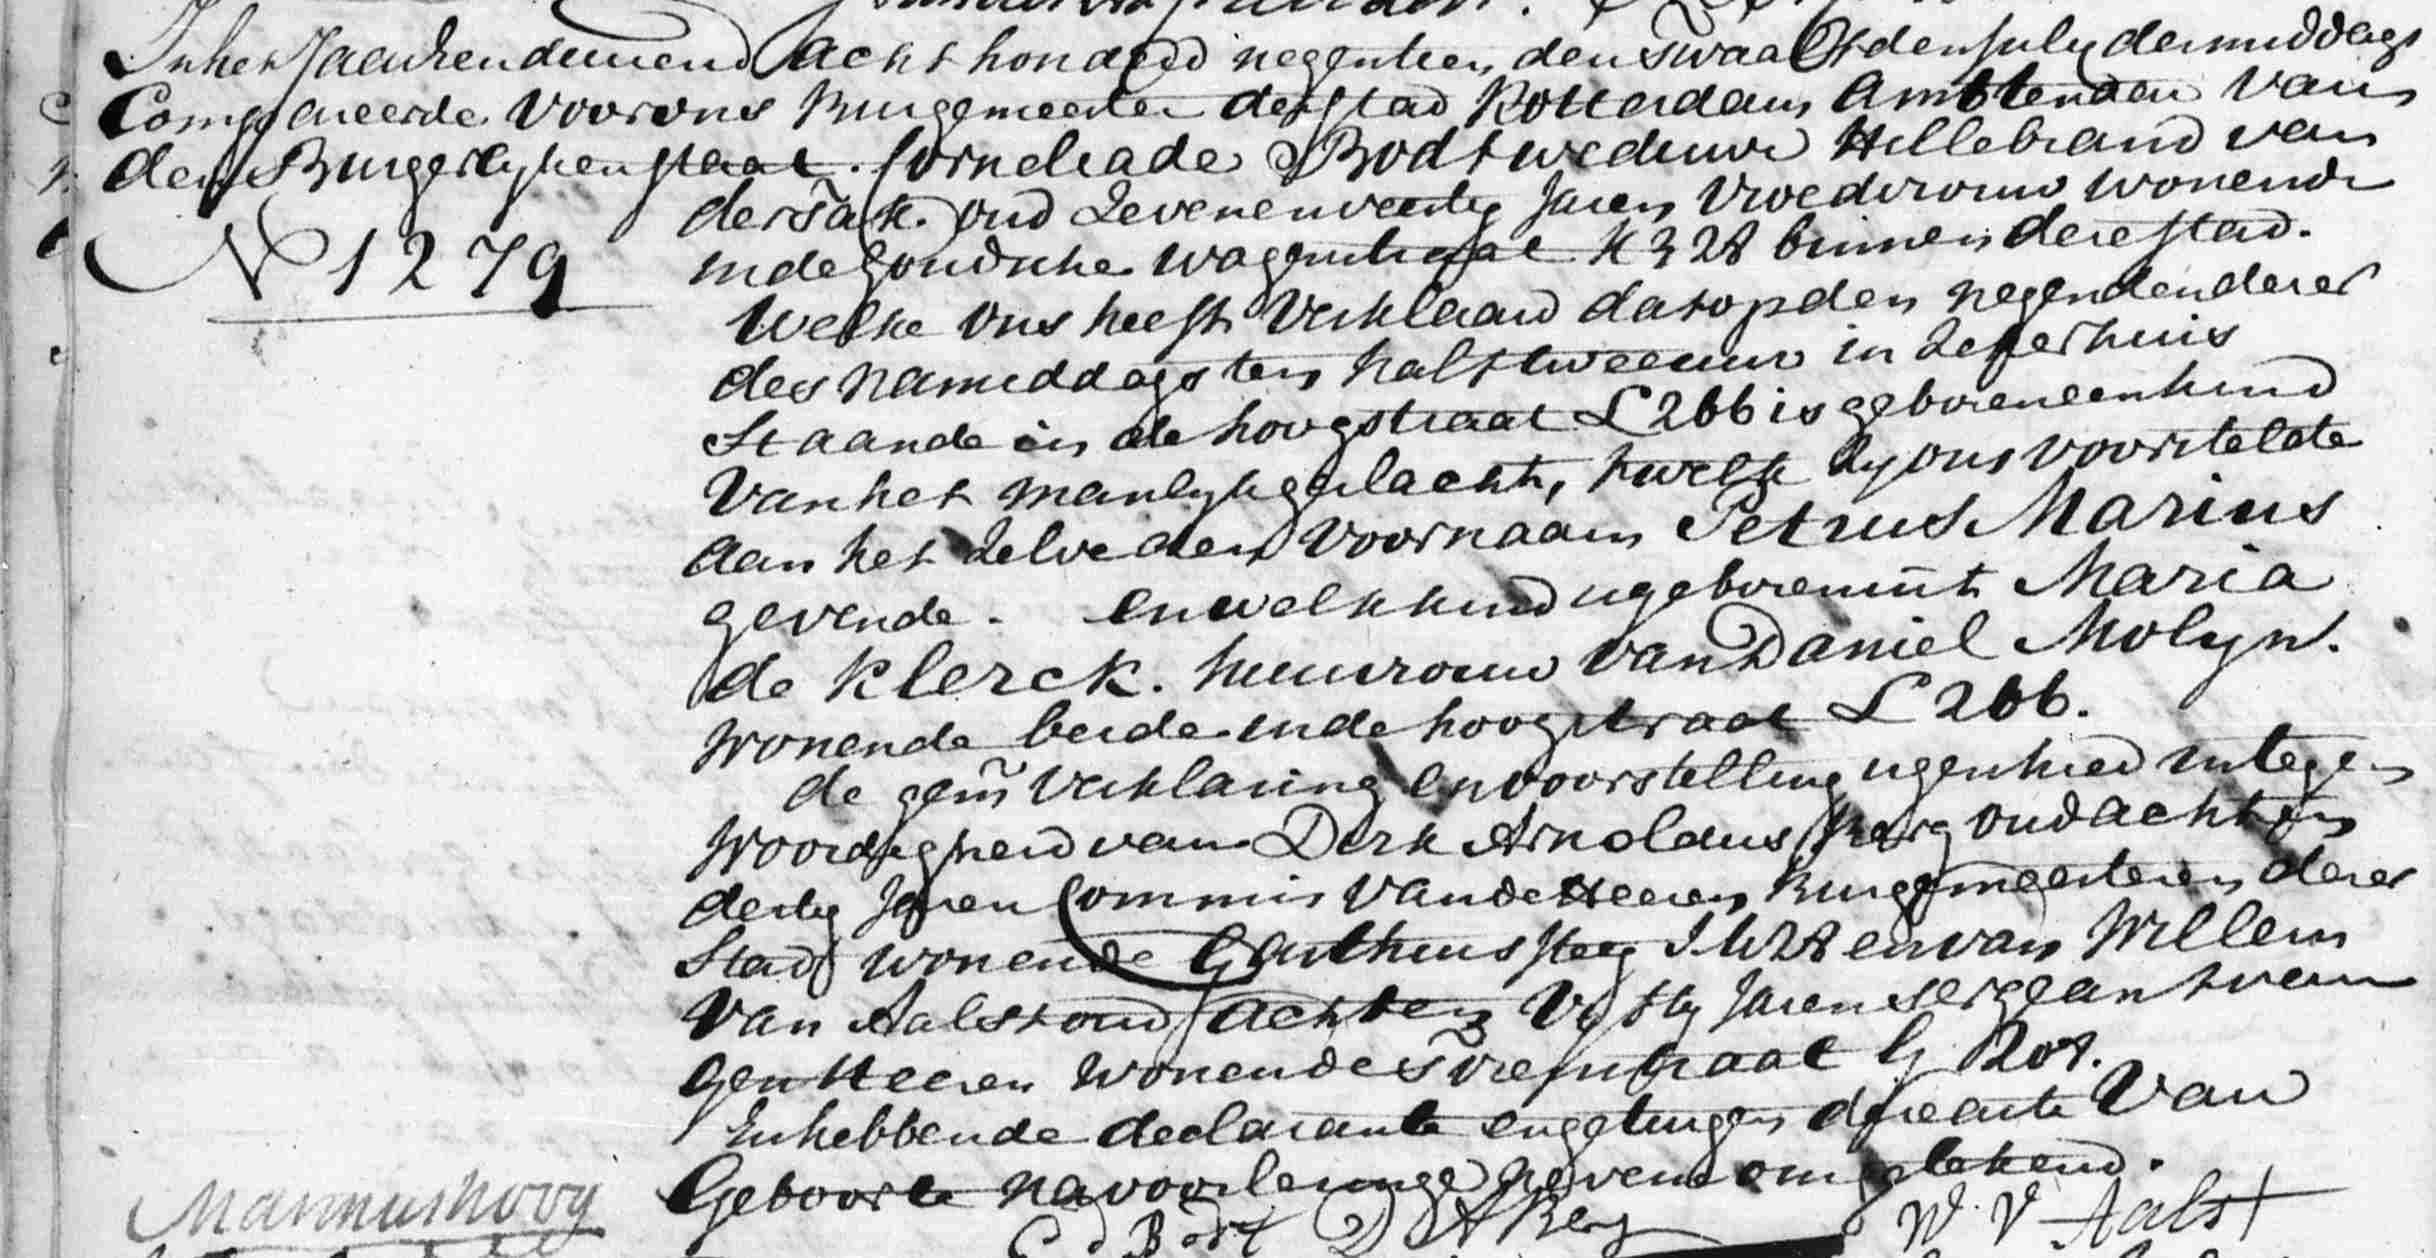 In het Jaar een duizend Acht honderd negentien, den Twaalfden July des middags
Compareerde voor ons Burgemeester der stad Rotterdam Ambtenaar van
den Burgerlyken staat. Cornelia de Bodt weduwe Hillebrand van
der Tak. oud Zevenenveertig Jaren Vroedvrouw wonende
in de Goudsche Wagenstraat K 328 binnen deze stad.
N 1279
Welke ons heeft Verklaard dat op den negenden dezer
des namiddags ten half twee uur in Zeker huis
Staande in de hoogstraat L 266 is geboren een kind
Van het manlyk geslacht, hwelk zy ons voorstelde
aan het Zelve den Voornaam Petrus Marius
gevende. en welk kind is geboren uit Maria
de Klerck. huisvrouw van Daniel Molyn.
Wonende beide in de hoogstraat L 266.
de gem Verklaring en voorstelling is geschied in tegen
Woordigheid van Dirk Arnoldus Berg oud acht en
dertig Jaren Commis van de Heeren Burgemeesteren dezer
Stad wonende en van Willem
Van Aalst oud acht en Vyftig Jaren sergeant van
gen Heeren Wonende
En hebben de declarante en getuigen deze acte Van
Geboorte na voorlezinge nevens ons getekend.
C d Bodt D A Berg W. V Aalst